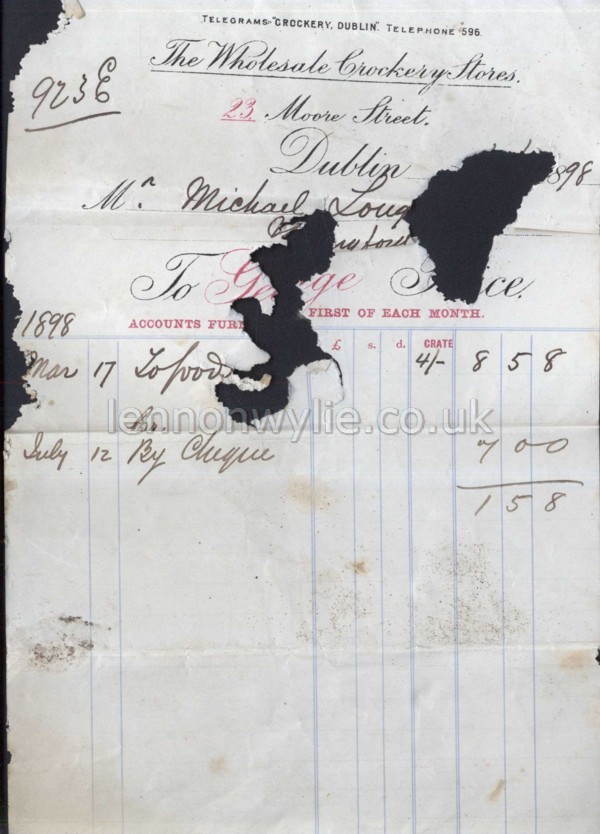 TELEGRAMS "CROCKERY, DUBLIN". TELEPHONE 596.
The Wholesale Crockery Stores.
923 E
23, Moore Street.
Dublin 898
Mr. Michael Loug
To George ice.
1898
ACCOUNTS FUR FIRST OF EACH MONTH.
£ s. d. CRATE
Mar 17 To Goods 4/- 8 5 8
lennonwylie.co.uk
Cr.
July 12 By Cheque 7 0 0
1 5 8